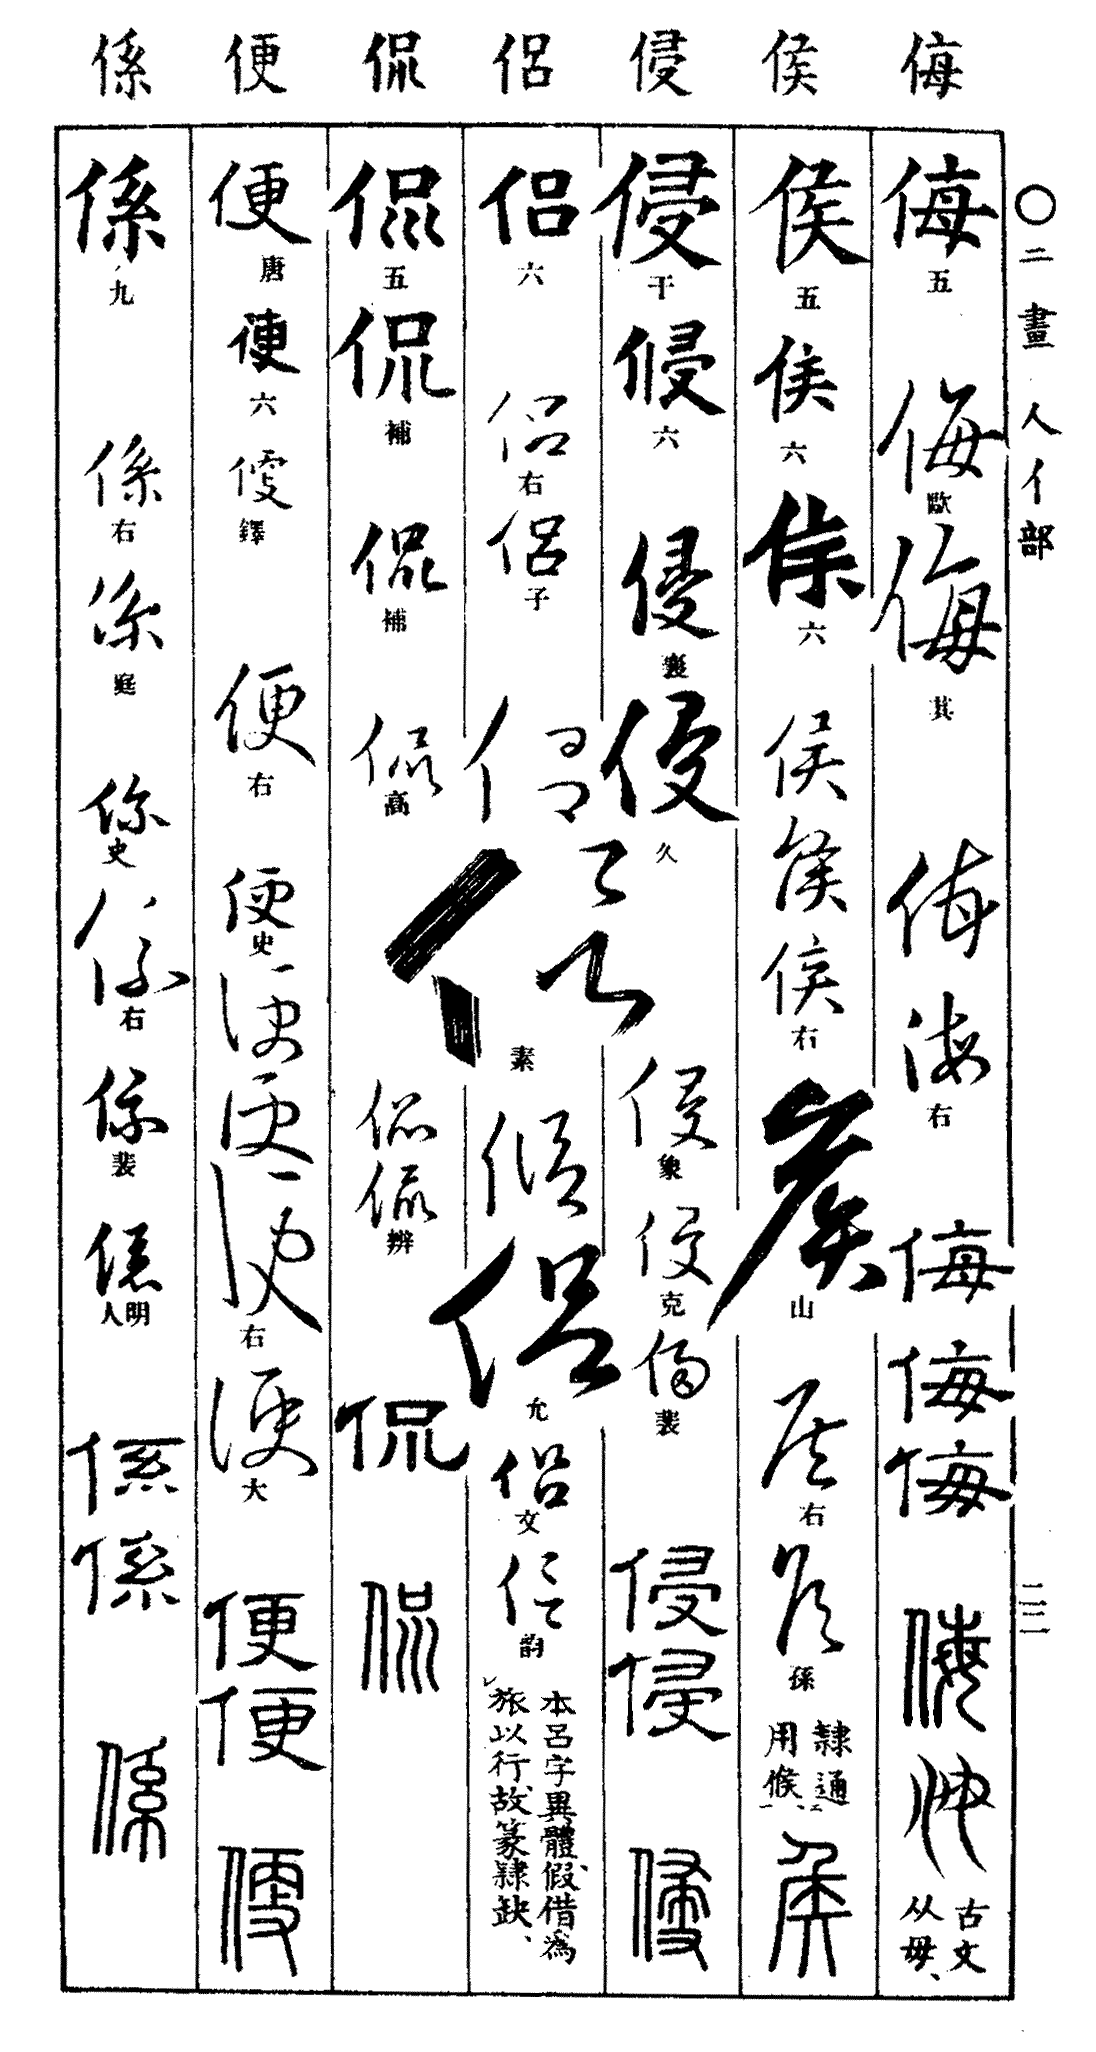 〇二畫 人亻部
二二
侮 侯 侵 侶 侃 便 係
侮 五
侮 歐
侮 其
侮
侮 右
侮
侮
侮
侮
古文
从母、
侯 五
侯 六
侯 六
侯
侯
侯 右
侯 山
侯 右
侯 孫
隸通
用候、
侯
侵 干
侵 六
侵 襄
侵 久
侵 象
侵 克
侵 裴
侵
侵
侵
侶 六
侶 右
侶 子
侶
侶 素
侶
侶 允
侶 文
侶 韵
本呂字異體、假借為
旅以行、故篆隸缺、
侃 五
侃 補
侃 補
侃 高
侃
侃 辨
侃
侃
便 唐
便 六
便 鐸
便 右
便 史
便
便
便 右
便 大
便
便
便
係 九
係 右
係 庭
係 史
係 右
係 裴
係 明人
係
係
係